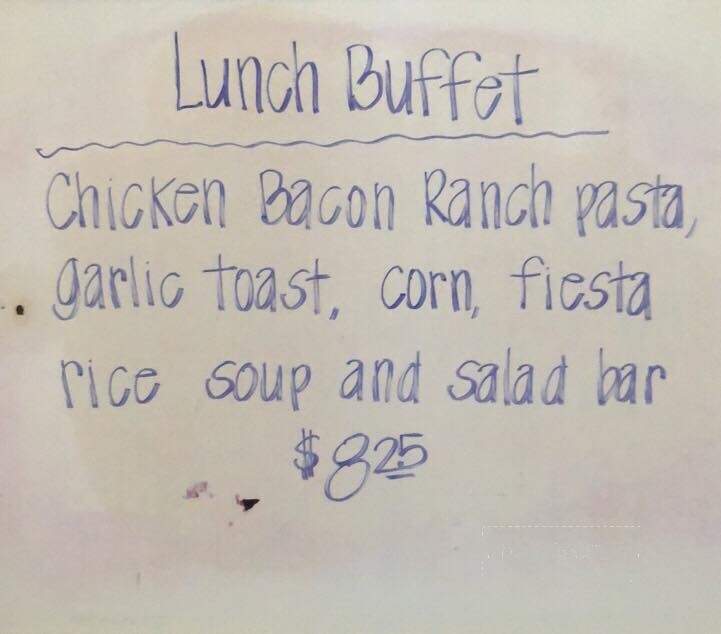 Lunch Buffet
Chicken Bacon Ranch pasta,
garlic toast, corn, fiesta
rice soup and salad bar
$8.25